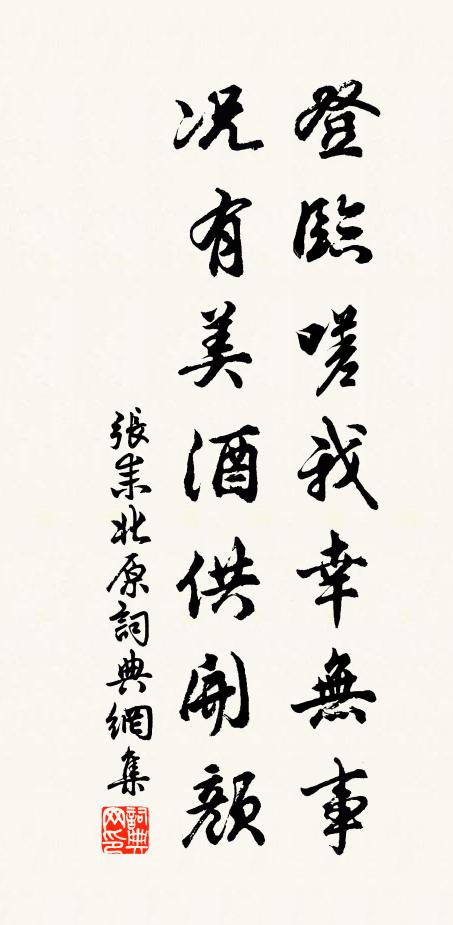 登臨嗟我幸無事
况有美酒供開顔
張耒北原詞典網集
詞典网印